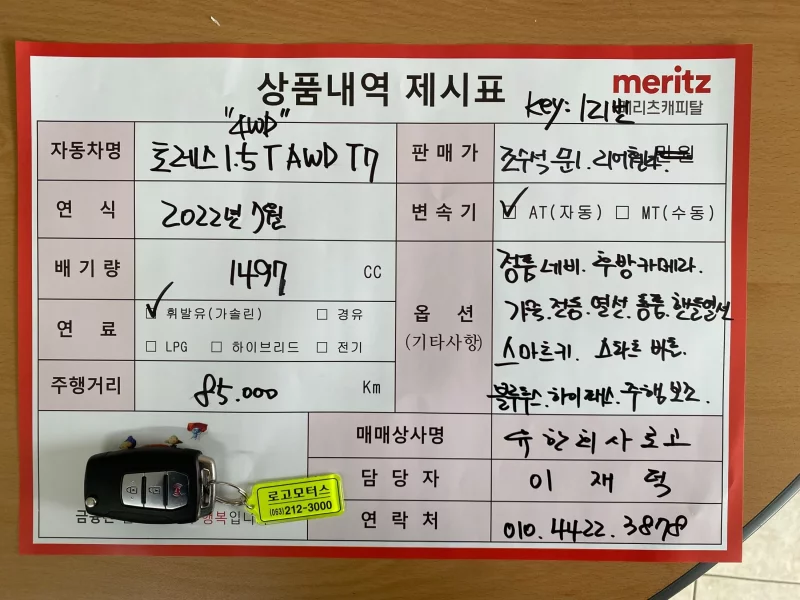 상품내역 제시표
meritz
메리츠캐피탈
Key: 1리벨
"4WD"
자동차명 토레스 1.5T AWD T7
판매가 조수석 문1. 리어휀다. 만원
연 식 2022년 7월
변속기 ☑ AT(자동) ☐ MT(수동)
배기량 1497 CC
연 료 ☑ 휘발유(가솔린) ☐ 경유
☐ LPG ☐ 하이브리드 ☐ 전기
주행거리 85.000 Km
옵 션
(기타사항)
정품네비. 후방카메라.
가죽. 전동. 열선. 통풍. 핸들열선
스마트키. 스타트 버튼.
블루투스. 하이패스. 주행보조.
매매상사명 유한회사로고
담 당 자 이 재 덕
연 락 처 010.4422.3878
로고모터스
(063)212-3000
행복입니다